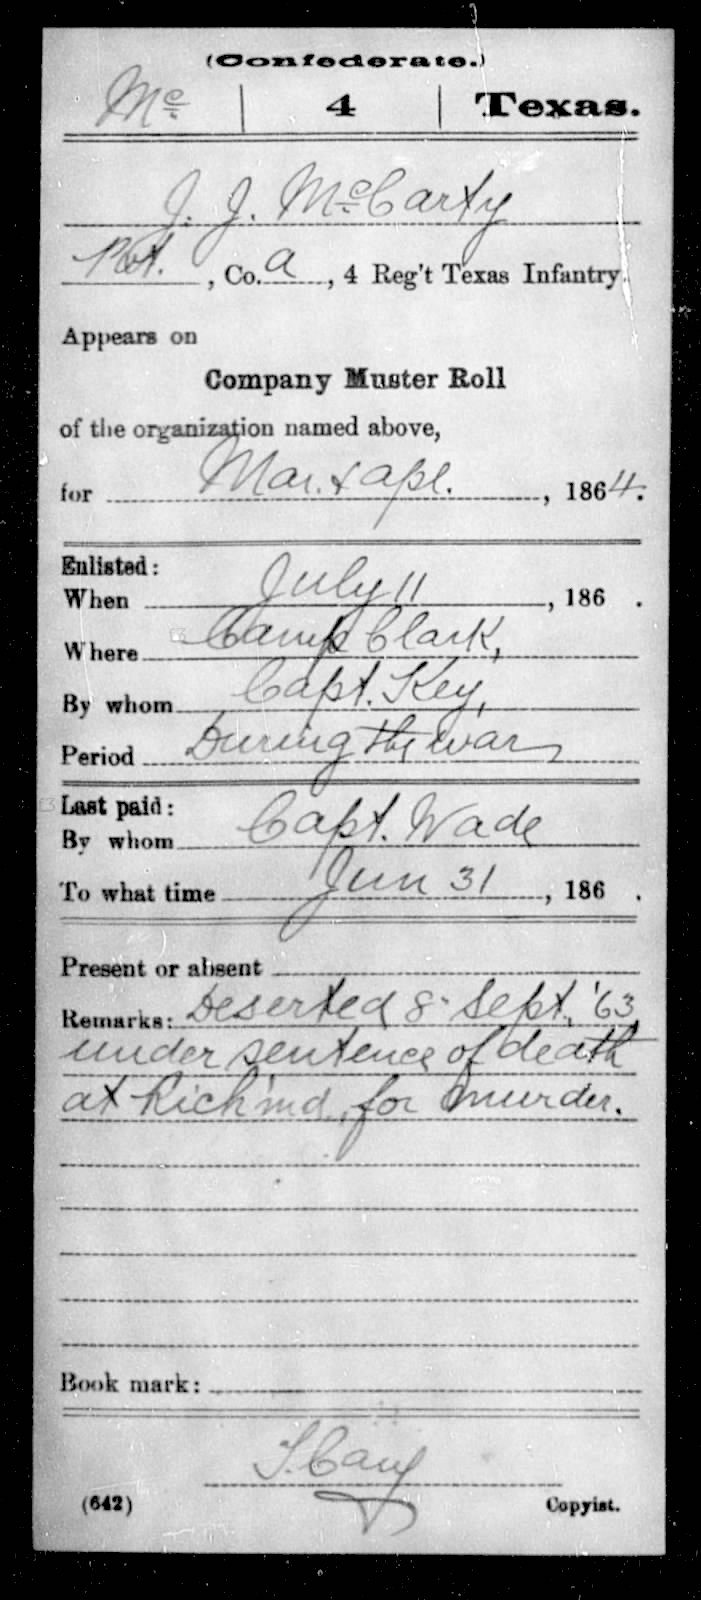 (Confederate.)
Mc | 4 | Texas.
J. J. McCarty
Pvt., Co. A, 4 Reg't Texas Infantry.
Appears on
Company Muster Roll
of the organization named above,
for Mar. & Apl., 1864.
Enlisted:
When July 11, 186 .
Where Camp Clark,
By whom Capt. Key,
Period During the war
Last paid:
By whom Capt. Wade
To what time Jun 31, 186 .
Present or absent
Remarks: Deserted 8 Sept., '63
under sentence of death
at Rich'md, for murder.
Book mark:
(642) Copyist.